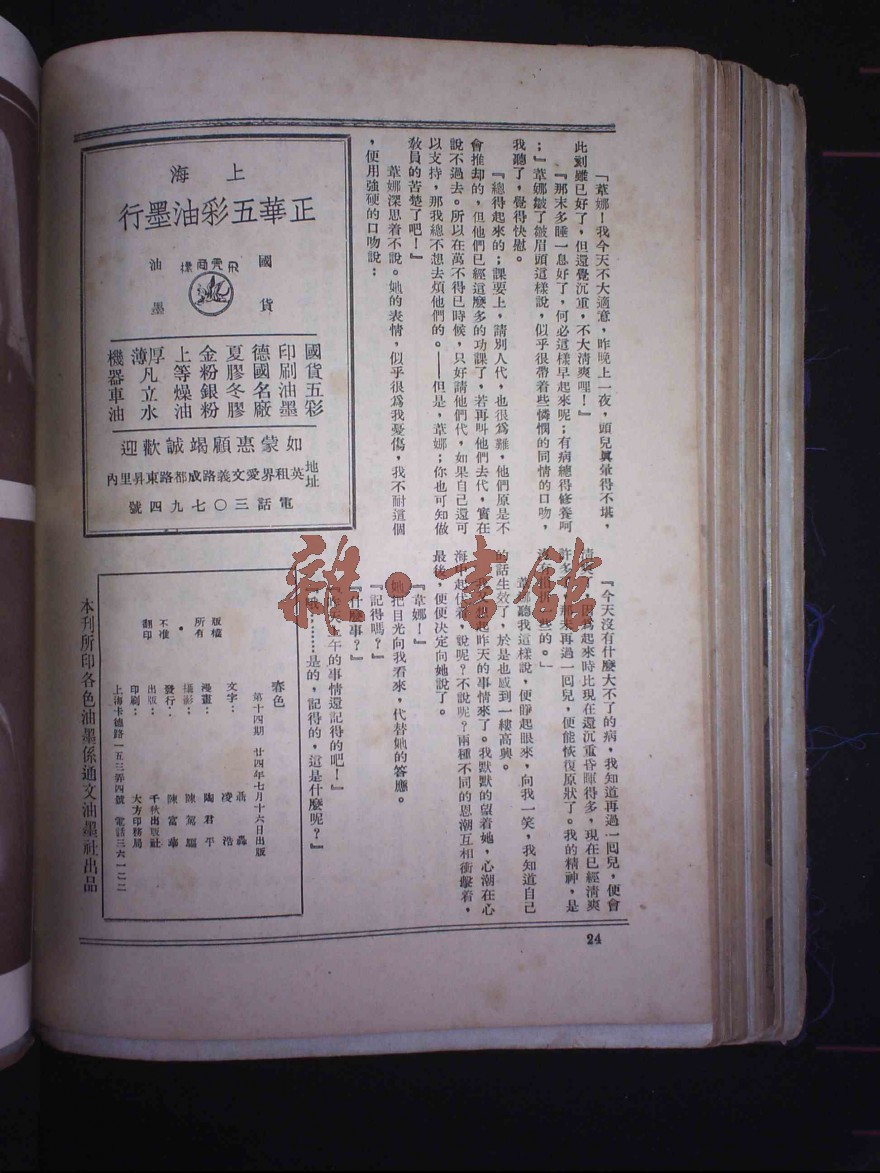 「葦娜！我今天不大適意，昨晚上一夜，頭兒異暈得不堪，
此刻雖已好了，但還覺沉重，不大清爽哩！』
『那末多睡一息好了，何必這樣早起來呢；有病總得修養呵
；』葦娜皺了皺眉頭這樣說，似乎很帶着些憐憫的同情的口吻，
我聽了，覺得快慰。
『總得起來的；課要上，請別人代，也很爲難，他們原是不
會推却的，但他們已經這麽多的功課了，若再叫他們去代，實在
說不過去。所以在萬不得已時候，只好請他們代，如果自己還可
以支持，那我總不想去煩他們的。——但是，葦娜；你也可知做
敎員的苦楚了吧！』
葦娜深思着不說。她的表情，似乎很爲我憂傷，我不耐這個
，便用強硬的口吻說：
『今天沒有什麽大不了的病，我知道再過一回兒，便會
淸爽，因爲起來時比現在還沉重昏暉得多，現在已經淸爽
許多，那末再過一回兒，便能恢復原狀了。我的精神，是
的。」
葦娜聽我這樣說，便靜起眼來，向我一笑，我知道自己
的話生效了，於是也感到一縷高興。
想起昨天的事情來了。我默默的望着她，心潮在心
海中起伏着，說呢？不說呢？兩種不同的恩潮互相衝擊着，
最後，便便決定向她說了。
『葦娜！』
她把目光向我看來，代替她的答應。
『記得嗎？』
『什麽事？』
午的事情還記得的吧！』
………是的，記得的，這是什麽呢？』
上海
正華五彩油墨行
國貨
飛虎商標
油墨
國貨五彩
印刷油墨
德國名廠
夏膠冬膠
金粉銀粉
上等燥油
厚薄凡立水
機器車油
如蒙惠顧竭誠歡迎
地址
英租界愛文義路成都路東昇里內
電話三〇七九四號
春色
第十四期　廿四年七月十六日出版
文字：
凌浩
漫畫：陶君平
攝影：
發行：陳富華
出版：千秋出版社
印刷：大方印務局
上海卡德路一五三弄四號　電話三六一二二
版權所有
•
不准翻印
本刊所印各色油墨係通文油墨社出品
24
雜·書館